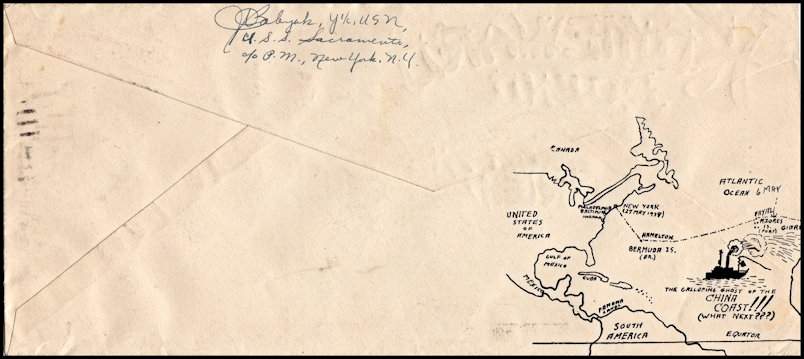 J Babyak, Y1c, USN,
U.S.S. Sacramento,
c/o P.M., New York, N.Y.
CANADA
ATLANTIC
OCEAN 6 MAY
PHILADELPHIA
BALTIMORE
NORFOLK
NEW YORK
(27 MAY 1939)
FAYAL
AZORES
IS.
(PORT)
UNITED
STATES
OF
AMERICA
HAMILTON
BERMUDA IS.
(BR.)
GULF OF
MEXICO
CUBA
MEXICO
THE GALLOPING GHOST OF THE
CHINA
COAST!!!
(WHAT NEXT???)
PANAMA
CANAL
SOUTH
AMERICA
EQUATOR